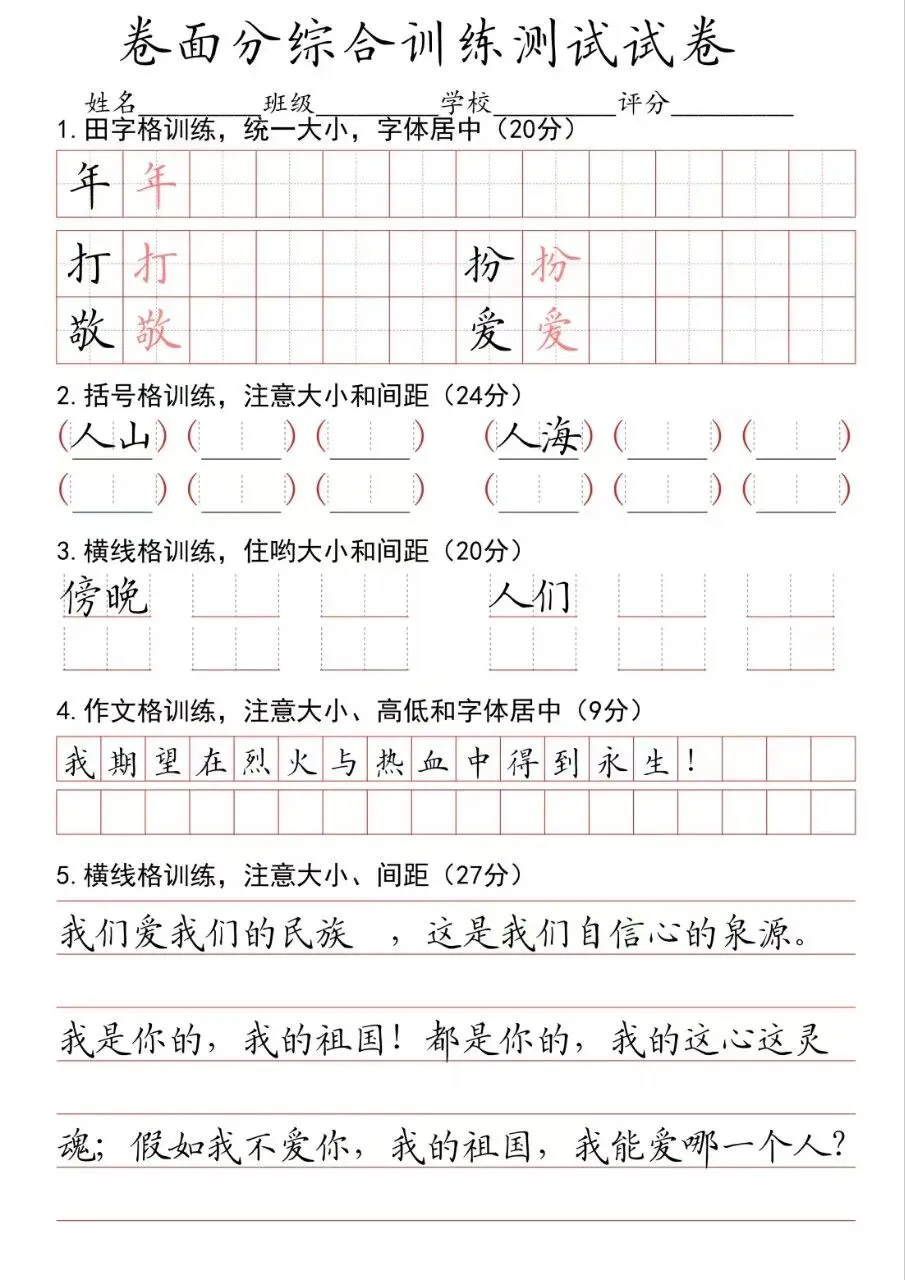 卷面分综合训练测试试卷
姓名_________班级_________学校_________评分_________
1.田字格训练，统一大小，字体居中（20分）
年 年
打 打 扮 扮
敬 敬 爱 爱
2.括号格训练，注意大小和间距（24分）
（人山）（ ）（ ） （人海）（ ）（ ）
（ ）（ ）（ ） （ ）（ ）（ ）
3.横线格训练，住哟大小和间距（20分）
傍晚 人们
4.作文格训练，注意大小、高低和字体居中（9分）
我期望在烈火与热血中得到永生！
5.横线格训练，注意大小、间距（27分）
我们爱我们的民族 ，这是我们自信心的泉源。
我是你的，我的祖国！都是你的，我的这心这灵
魂；假如我不爱你，我的祖国，我能爱哪一个人？